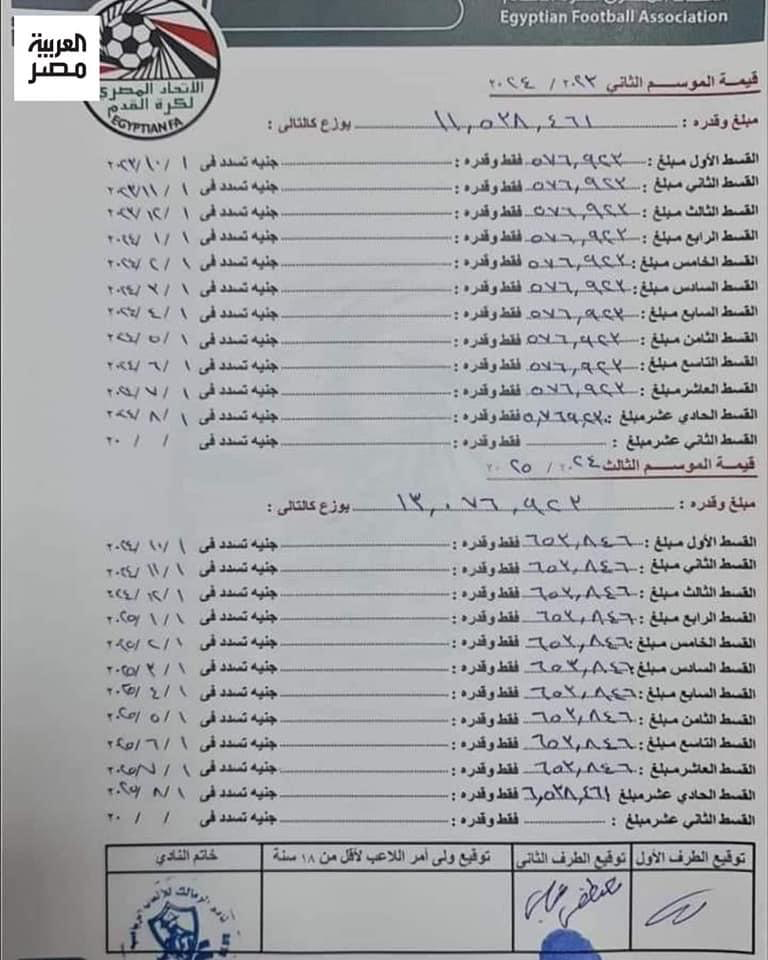 العربية
مصر
الاتحاد المصري
لكرة القدم
EGYPTIAN FA
Egyptian Football Association
قيمة الموسم الثاني ٢٠٢٣ / ٢٠٢٤
مبلغ وقدره : ١١,٥٣٨,٤٦١ يوزع كالتالى :
القسط الأول مبلغ : ٥٧٦,٩٢٣ فقط وقدره : جنيه تسدد فى ١ / ١٠ / ٢٠٢٣
القسط الثاني مبلغ : ٥٧٦,٩٢٣ فقط وقدره : جنيه تسدد فى ١ / ١١ / ٢٠٢٣
القسط الثالث مبلغ : ٥٧٦,٩٢٣ فقط وقدره : جنيه تسدد فى ١ / ١٢ / ٢٠٢٣
القسط الرابع مبلغ : ٥٧٦,٩٢٣ فقط وقدره : جنيه تسدد فى ١ / ١ / ٢٠٢٤
القسط الخامس مبلغ : ٥٧٦,٩٢٣ فقط وقدره : جنيه تسدد فى ١ / ٢ / ٢٠٢٤
القسط السادس مبلغ : ٥٧٦,٩٢٣ فقط وقدره : جنيه تسدد فى ١ / ٣ / ٢٠٢٤
القسط السابع مبلغ : ٥٧٦,٩٢٣ فقط وقدره : جنيه تسدد فى ١ / ٤ / ٢٠٢٤
القسط الثامن مبلغ : ٥٧٦,٩٢٣ فقط وقدره : جنيه تسدد فى ١ / ٥ / ٢٠٢٤
القسط التاسع مبلغ : ٥٧٦,٩٢٣ فقط وقدره : جنيه تسدد فى ١ / ٦ / ٢٠٢٤
القسط العاشر مبلغ : ٥٧٦,٩٢٣ فقط وقدره : جنيه تسدد فى ١ / ٧ / ٢٠٢٤
القسط الحادي عشر مبلغ : ٥,٧٦٩,٢٣٠ فقط وقدره : جنيه تسدد فى ١ / ٨ / ٢٠٢٤
القسط الثاني عشر مبلغ : فقط وقدره : جنيه تسدد فى / / ٢٠
قيمة الموسم الثالث ٢٠٢٤ / ٢٠٢٥
مبلغ وقدره : ١٣,٠٧٦,٩٢٣ يوزع كالتالى :
القسط الأول مبلغ : ٦٥٣,٨٤٦ فقط وقدره : جنيه تسدد فى ١ / ١٠ / ٢٠٢٤
القسط الثاني مبلغ : ٦٥٣,٨٤٦ فقط وقدره : جنيه تسدد فى ١ / ١١ / ٢٠٢٤
القسط الثالث مبلغ : ٦٥٣,٨٤٦ فقط وقدره : جنيه تسدد فى ١ / ١٢ / ٢٠٢٤
القسط الرابع مبلغ : ٦٥٣,٨٤٦ فقط وقدره : جنيه تسدد فى ١ / ١ / ٢٠٢٥
القسط الخامس مبلغ : ٦٥٣,٨٤٦ فقط وقدره : جنيه تسدد فى ١ / ٢ / ٢٠٢٥
القسط السادس مبلغ : ٦٥٣,٨٤٦ فقط وقدره : جنيه تسدد فى ١ / ٣ / ٢٠٢٥
القسط السابع مبلغ : ٦٥٣,٨٤٦ فقط وقدره : جنيه تسدد فى ١ / ٤ / ٢٠٢٥
القسط الثامن مبلغ : ٦٥٣,٨٤٦ فقط وقدره : جنيه تسدد فى ١ / ٥ / ٢٠٢٥
القسط التاسع مبلغ : ٦٥٣,٨٤٦ فقط وقدره : جنيه تسدد فى ١ / ٦ / ٢٠٢٥
القسط العاشر مبلغ : ٦٥٣,٨٤٦ فقط وقدره : جنيه تسدد فى ١ / ٧ / ٢٠٢٥
القسط الحادي عشر مبلغ ٦,٥٣٨,٤٦١ فقط وقدره : جنيه تسدد فى ١ / ٨ / ٢٠٢٥
القسط الثاني عشر مبلغ : فقط وقدره : جنيه تسدد فى / / ٢٠
توقيع الطرف الأول توقيع الطرف الثاني توقيع ولى أمر اللاعب لأقل من ١٨ سنة خاتم النادي
نادى الزمالك للألعاب الرياضية